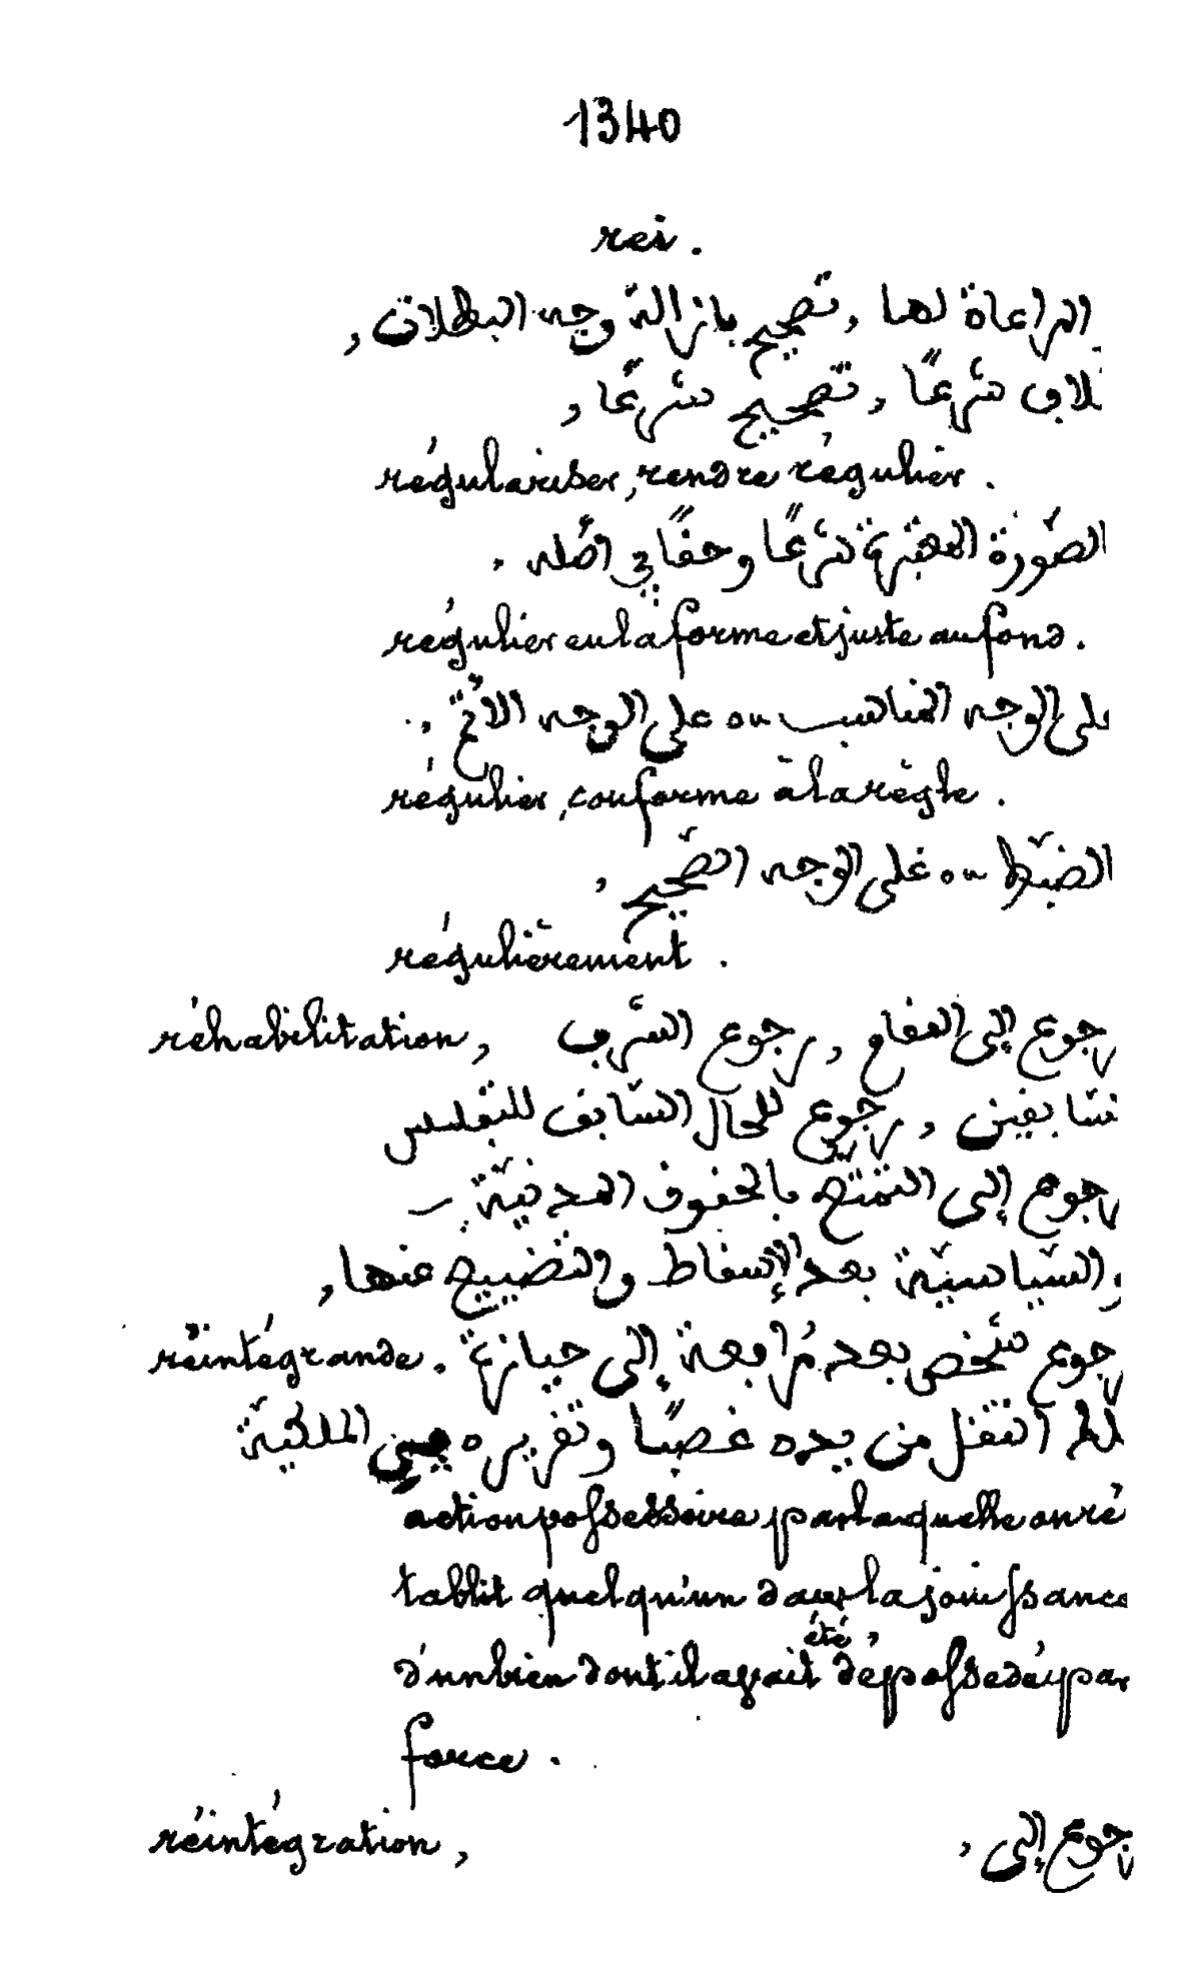 1340
rei.
المراعاة لها, تصحيح بازالة وجه البطلان,
شرعًا, تصحيح شرعًا,
régulariser, rendre régulier.
الصّورة المعتبرة شرعًا وحقًا في اصله.
régulier en la forme et juste au fond.
على الوجه المناسب ou على الوجه الاتمّ.
régulier, conforme à la règle.
الضبط ou على الوجه الصّحيح,
régulièrement.
réhabilitation, رجوع إلى المقام, رجوع الشّرف
رجوع للحال السّابق للتفليس
رجوع إلى التمتّع بالحقوق المدنيّة
والسّياسيّة بعد الإسقاط والتضييع عنها,
réintégrande. رجوع شخص بعد مرافعة إلى حيازة
انتقل من يده غصبًا وتقريره الملكيّة
action possessoire par laquelle on ré
tablit quelqu'un dans la jouissance
d'un bien dont il avait été dépossédé par
force.
réintégration, رجوع إلى,